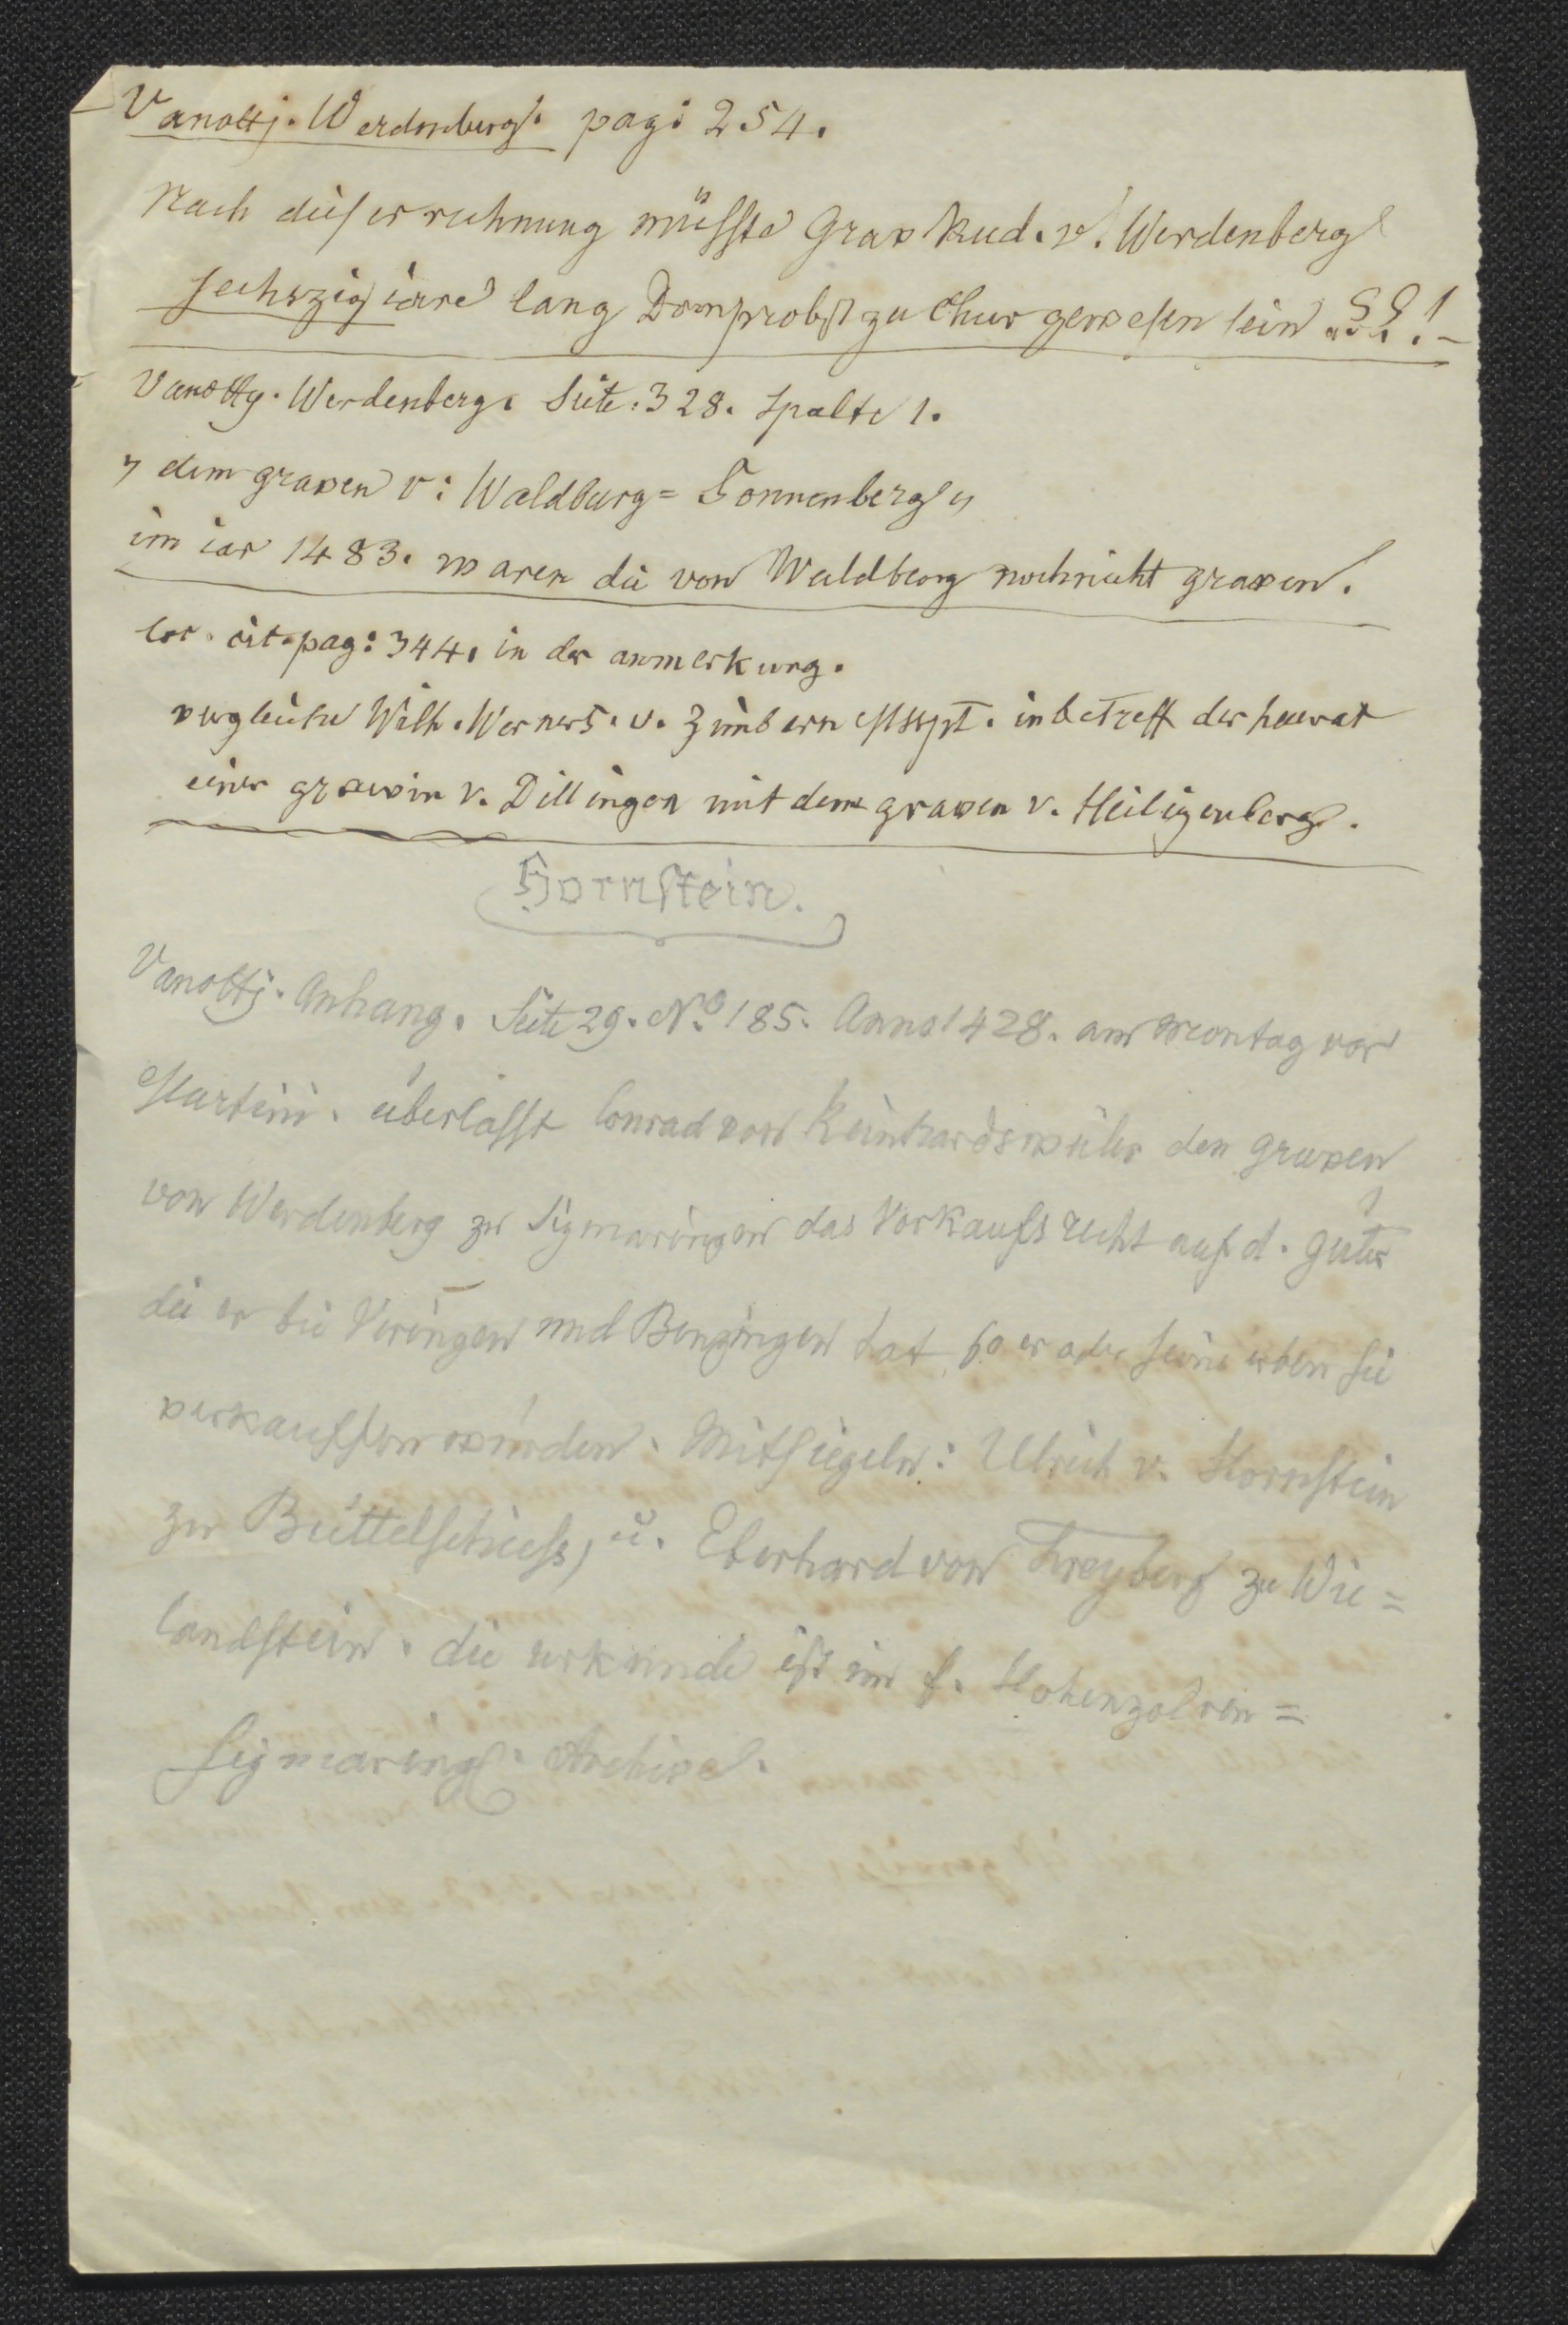 Vanottj. Werdenberg. pag: 254.
Nach dieser rechnung müsste Grav Rud. v. Werdenberg
sechszig iare lang Domprobst zu Chur gewesen sein ..??!–
Vanotty. Werdenberg. Seite. 328. Spalte 1.
„ dem graven v: Waldburg= Sonnenberg „
im iar 1483. waren die von Waldbourg noch nicht graven.
loc. cit. pag: 344. in der anmerkung.
vergleiche Wilh. Werners. v. Zimbern Msspt. in betreff der heurat
einer grävin v. Dillingen mit dem graven v. Heiligenberg.
Hornstein.
Vanottj. Anhang. Seite 29. No. 185. Anno 1428. am Montag vor
Martini. überlasst Conrad von Reinhardsweiler den graven
von Werdenberg zu Sigmaringen das Vorkaufsrecht auf d. güter
die er bei Veringen und Benzingen hat so er oder seine erben sie
verkauffen würden. Mitsiegeln: Ulrich v. Hornstein
zu Büttelschiess, u. Eberhard von Freyberg zu Wie=
landstein. die urkunde ist im f. Hohenzolren=
Sigmaring. Archive.